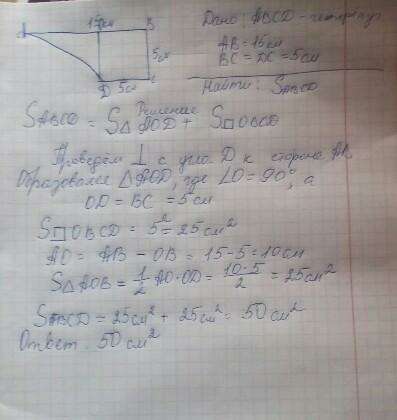 A 15см B
5см
D 5см C
Дано: ABCD - четырёхуг.
AB = 15см
BC = DC = 5см
Найти: SABCD
Решение
SABCD = S△ AOD + S□OBCD
Проведём ⊥ с угла D к стороне AB
Образовался △AOD, где ∠O = 90°, а
OD = BC = 5см
S□OBCD = 5² = 25см²
AO = AB - OB = 15-5 = 10см
S△AOB = 1/2 AO·OD = 10·5/2 = 25см²
SABCD = 25см² + 25см² = 50см²
Ответ: 50см²